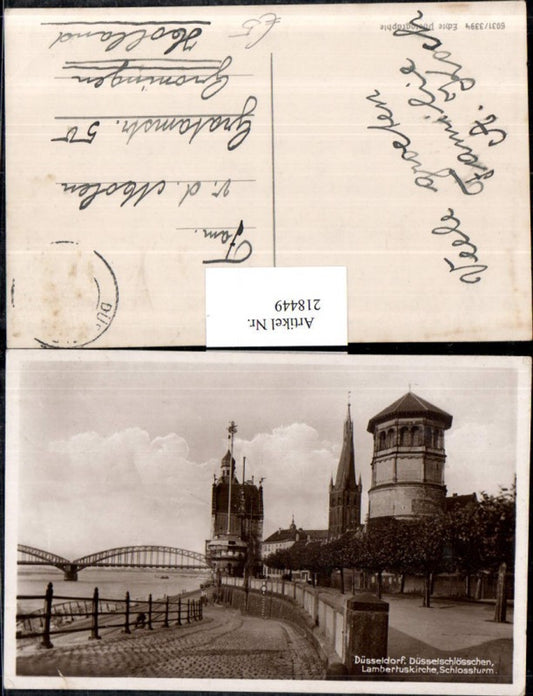 5031/3394 Echte Photographie
Veele groeten
Familie
Fam.
v. d. Molen
Gratamstr. 5
Groningen
Holland
DÜ
Artikel Nr.
218449
Düsseldorf. Düsselschlösschen,
Lambertuskirche, Schlossturm.